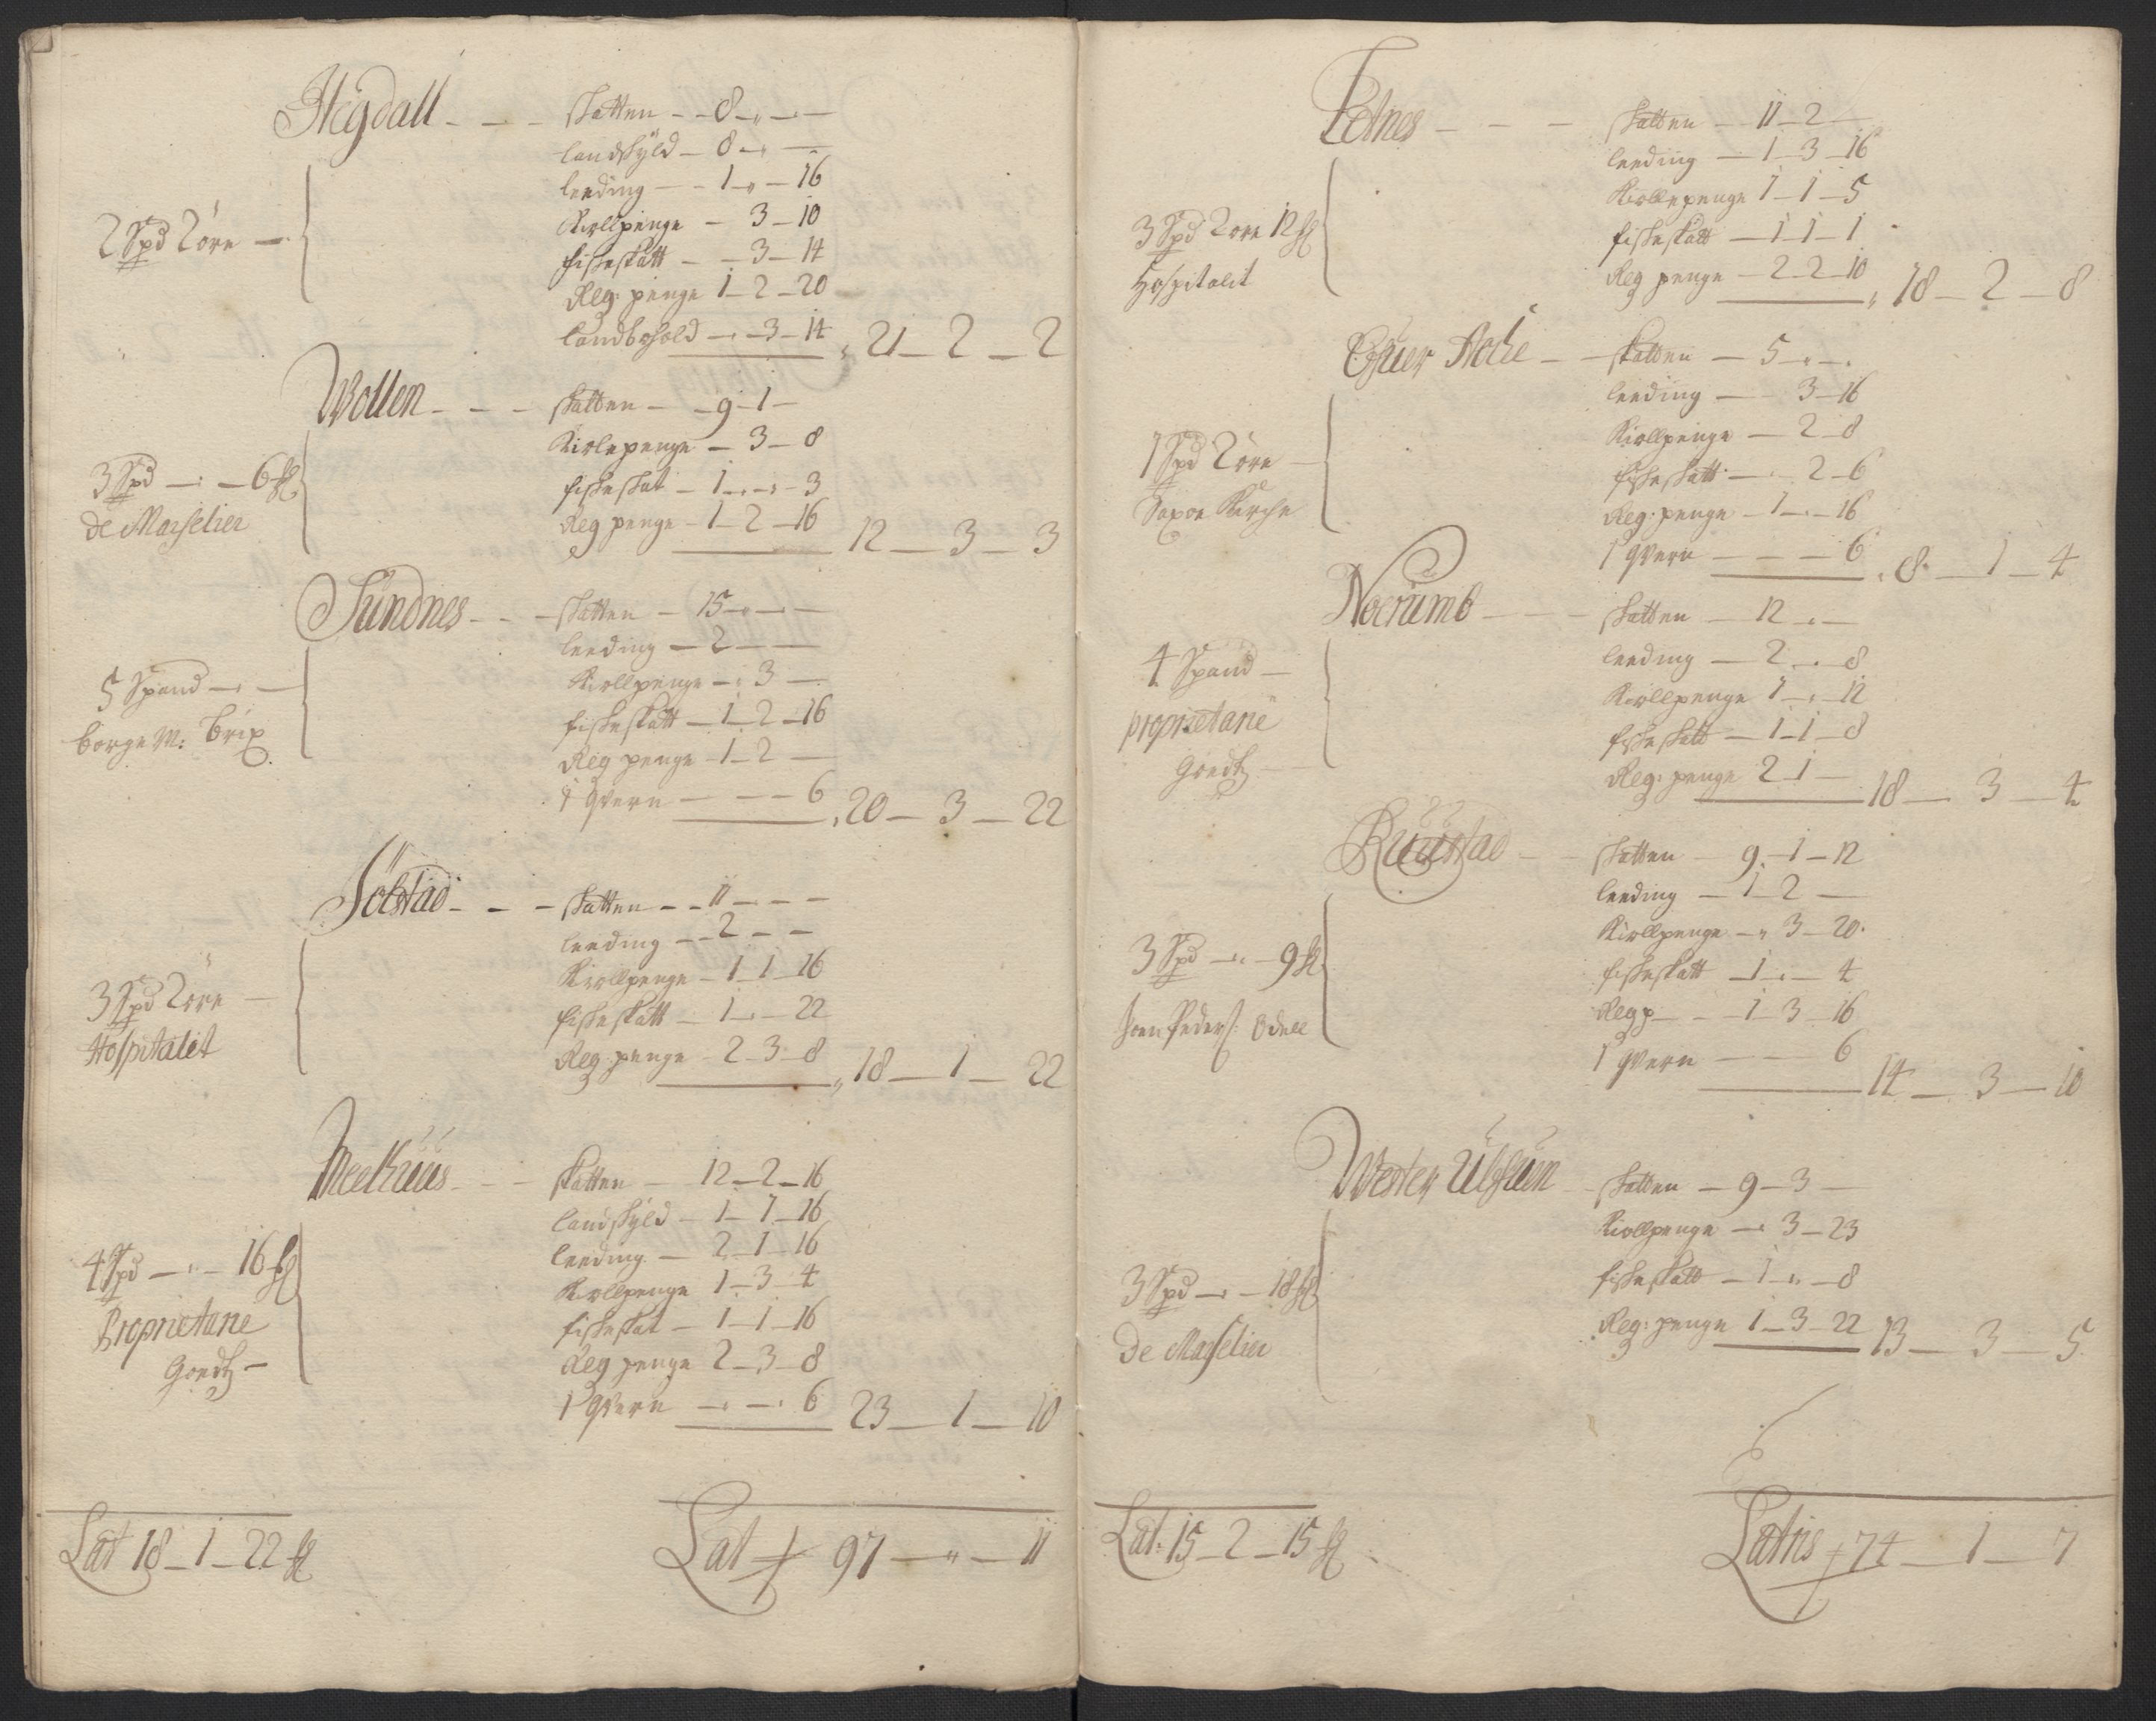 Hegdall - - - skatten - - 8 - " - -
landskyld - 8 - " -
leeding - - 1 - " - 16
Korllpenge - 3 - 10
2 Spd 2 öre -
fiskeskatt - - 3 - 14
Reg: penge 1 - 2 - 20
landbohold - " - 3 - 14 " 21 - 2 - 2
Wollen - - - skatten - - 9 - 1 -
Korlepenge - 3 - 8
3 Spd - " - 6 sk
fiskeskat - 1 - " - 3
de Marselier
Reg penge - 1 - 2 - 16 12 - 3 - 3
Sündnes - - - skatten - 15 - " - -
leeding - 2 - -
5 Spand - " -
Korllpenge - " 3 -
borge M: brix
fiskeskatt - 1 - 2 - 16
Reg penge - 1 - 2 -
1 qvern - - - 6 " 20 - 3 - 22
Sölstad - - - skatten - - 11 - - -
leeding - - 2 - -
3 Spd 2 öre -
Korllpenge - 1 - 1 - 16
Hospitalet
fiskeskatt - 1 - " - 22
Reg penge - 2 - 3 - 8 " 18 - 1 - 22
Meelhuus - - - skatten - 12 - 2 - 16
landskyld - 1 - 1 - 16
4 Spd - " - 16 sk
leeding - 2 - 1 - 16
Proprietarie
Korllpenge 1 - 3 - 4
Goedtz -
fiskeskat - 1 - 1 - 16
Reg penge 2 - 3 - 8
1 qvern - " - " 6 23 - 1 - 10
Lat 18 - 1 - 22 sk
Lat 97 - " - 11
Letnes - - - skatten - 11 - 2 -
leeding - 1 - 3 - 16
Korllepenge 1 - 1 - 5
3 Spd 2 ore 12 sk
fiskeskatt - 1 - 1 - 1
Hospitalet
Reg penge - 2 - 2 - 10 " 18 - 2 - 8
skatten - 5 " - "
leeding - - 3 - 16
Korllpenge - 2 - 8
1 Spd 2 öre -
fiskeskatt - " 2 - 6
Saxoe Kirche
Reg: penge - 1 - " - 16
1 qvern - - - 6 " 8 - 1 - 4
Noerumb - - - skatten - 12 " -
leeding - 2 - " - 8
4 Spand -
Korllpenge 1 - " - 12
proprietarie
fiskeskatt - 1 - 1 - 8
Goedtz -
Reg: penge 2 - 1 - 18 - 3 - 4
skatten - 9 - 1 - 12
leeding - 1 - 2 -
Korllpenge - " 3 - 20
3 Spd - " - 9 sk
fiskeskatt - 1 - " - 4
Joen Peders: Odell
Reg p - - 1 - 3 - 16
1 qvern - - 6 14 - 3 - 10
skatten - 9 - 3 -
Korllpenge - " 3 - 23
3 Spd - " - 18 sk
fiskeskatt - 1 " - 8
De Marselier
Reg: penge 1 - 3 - 22 13 - 3 - 5
Lat: 15 - 2 - 15 sk
Latris 74 - 1 - 7